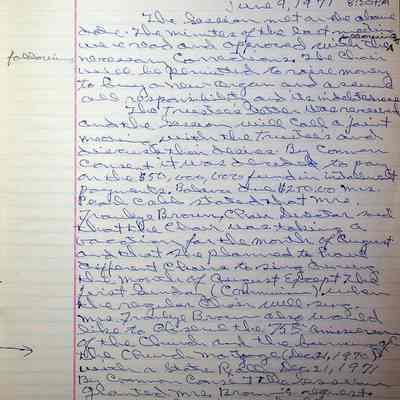 June 9, 1971 8:20 P.M.
The Session met on the above
date. The minutes of the last meeting
following
were read and approved with the following
necessary corrections. The Choir
will be permitted to raise money
to buy a new Organ and assume
all responsibility on its indebtedness
The Trustee's letter was received
and the Session will call a joint
meeting with the Trustees and
discuss their desires. By Common
Consent it was decided to pay
on the $50,000,000 fund in interest
payments. Balance due $200.00 Mrs.
Pearl Cabil stated that Mrs.
Frankye Brown, Choir Director said
that the Choir was taking a
vacation for the month of August
and that she planned to have
different Choirs to sing during
the month of August Except the
first Sunday (Communion) when
the regular Choir will sing
Mrs. Frankye Brown also would
like to observe the 75th Anniversary
of the Church and the burning of
the Church Mortgage (Dec. 21, 1970)
with a State Dec. 21, 1971
By Common Consent the session
granted Mrs. Brown's request